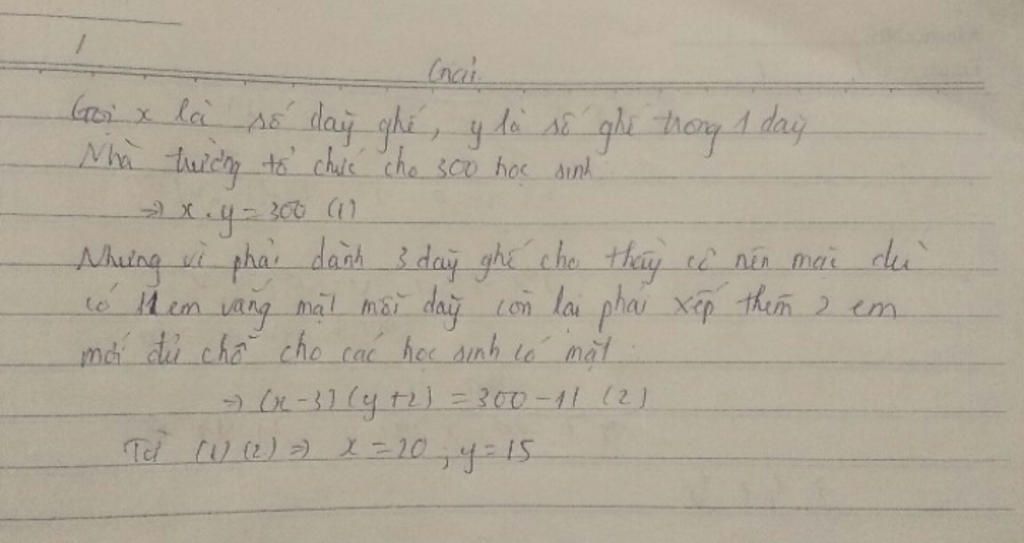 1
Giải
Gọi x là số dãy ghế, y là số ghế trong 1 dãy
Nhà trường tổ chức cho 300 học sinh
=> x.y = 300 (1)
Nhưng vì phải dành 3 dãy ghế cho thầy cô nên mặc dù
có 11 em vắng mặt mỗi dãy còn lại phải xếp thêm 2 em
mới đủ chỗ cho các học sinh có mặt
=> (x-3)(y+2) = 300-11 (2)
Từ (1)(2) => x = 20; y = 15